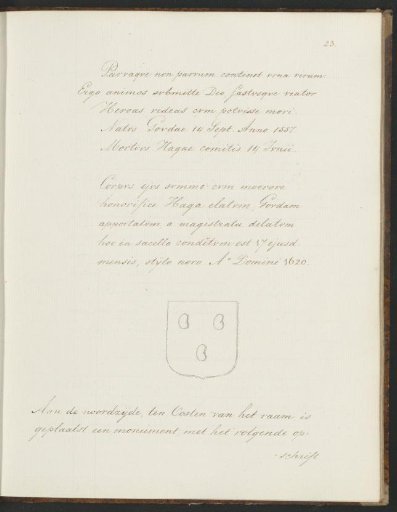 23.
Parvaqve non parvum continet vrna virum.
Ergo animos svbmitte Deo fastvsqve viator
Heroas videas cvm potvisse mori.
Natvs Govdae 14 Sept. Anno 1557
Mortvvs Hagae comitis 14 Ivnii.
Corpvs ejvs svmmo cvm moerore
honorifice Haga elatvm Govdam
apportatvm a magistratu delatvm
hoc in sacello conditvm est 17 ejusd
mensis, stylo novo Ao Domine 1620.
Aan de noordzijde, ten Oosten van het raam is
geplaatst een monument met het volgende op-
schrift